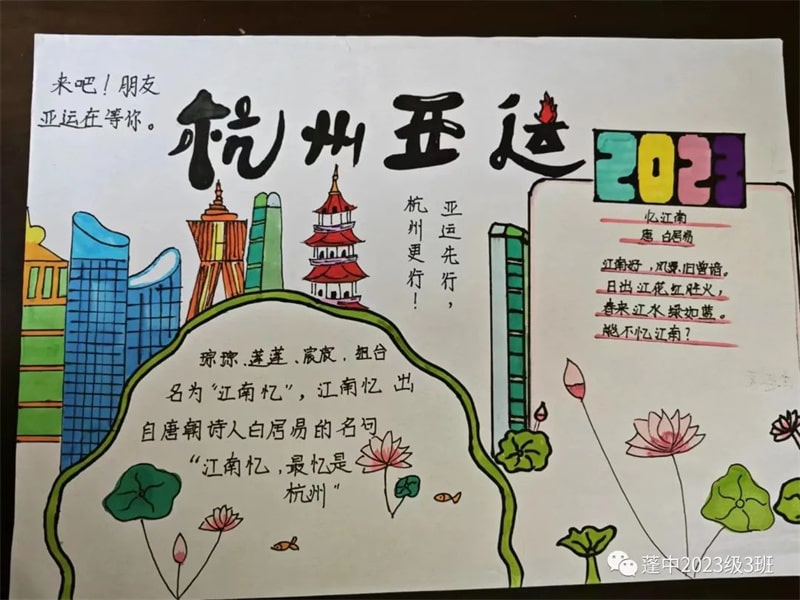 来吧！朋友
亚运在等你。
杭州亚运
2023
亚运先行，
杭州更行！
忆江南
唐 白居易
江南好，风景旧曾谙。
日出江花红胜火，
春来江水绿如蓝。
能不忆江南？
琮琮、莲莲、宸宸，组合
名为“江南忆”，江南忆 出
自唐朝诗人白居易的名句
“江南忆，最忆是
杭州”
蓬中2023级3班